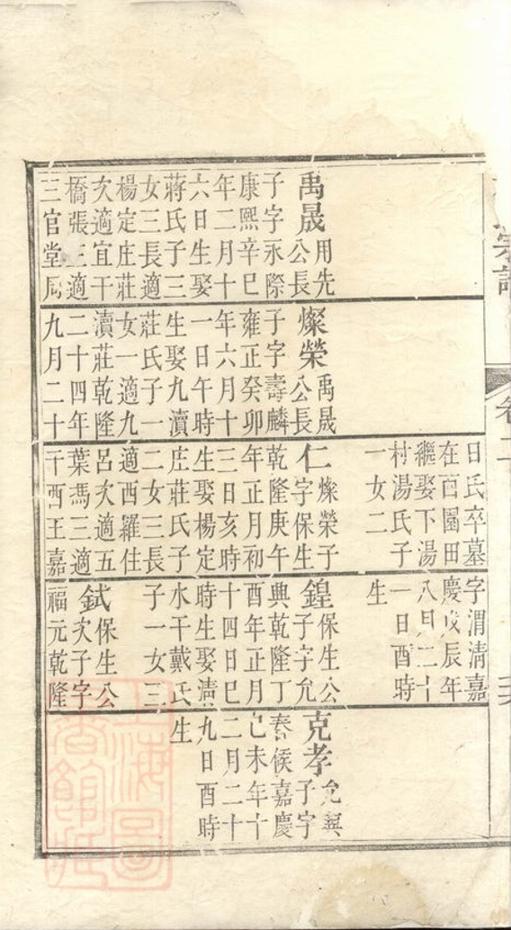 宗譜
卷二
禹晟用先
公長
子字永際
康熙辛巳
年二月十
六日生娶
蔣氏子三
女三長適
楊定庄莊
次適宜干
橋張三適
三官堂周
燦榮禹晟
公長
子字壽麟
雍正癸卯
年六月十
一日午時
生娶九瀆
莊氏子一
女一適九
瀆莊乾隆
二十四年
九月二十
日氏卒墓
在西園田
繼娶下湯
村湯氏子
一女二
仁燦榮子
字保生
乾隆庚午
年正月初
三日亥時
生娶楊定
庄莊氏子
二女三長
適西羅住
呂次適五
葉馮三適
干西王嘉
字渭清嘉
慶戊辰年
八月二十
一日酉時
生
鍠保生公
子字允
典乾隆丁
酉年正月
十四日巳
時生娶
水干戴氏
子一女三
鉽保生公
次子字
福元乾隆
克孝允
子字
春候嘉慶
己未年十
二月二十
九日酉時
生
上海圖書館藏